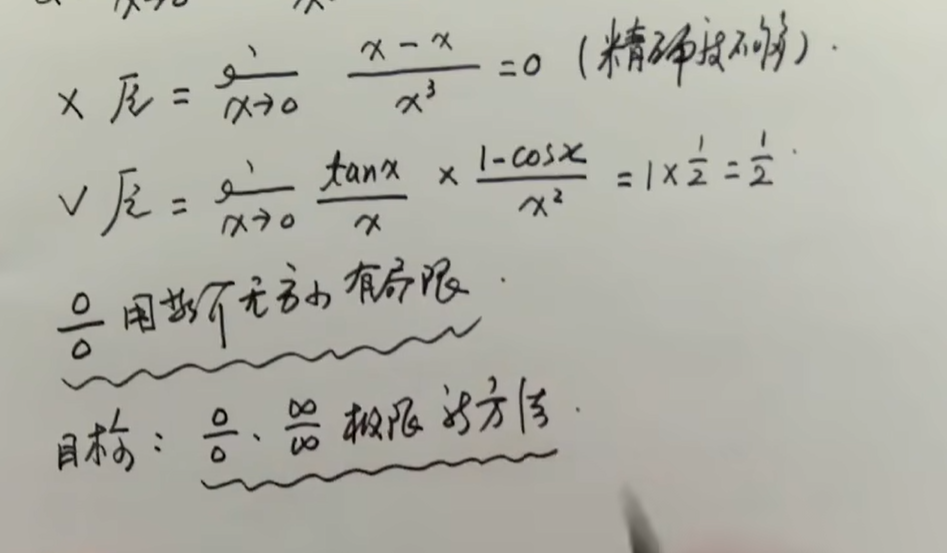 x→0
× 原 = lim x→0 (x-x)/x³ = 0 (精确度不够).
√ 原 = lim x→0 tanx/x × (1-cosx)/x² = 1×1/2 = 1/2.
0/0 用等价无穷小有局限.
目标: 0/0、∞/∞ 极限新方法.